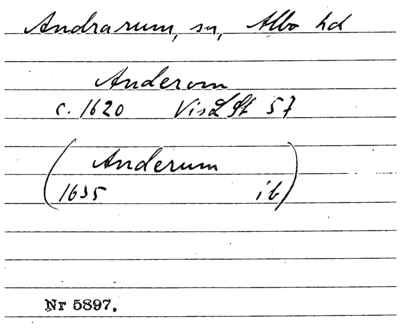 Andrarum, sn, Albo hd
Anderom
c. 1620 VisLSt 57
(Anderum
1635 ib)
Nr 5897.